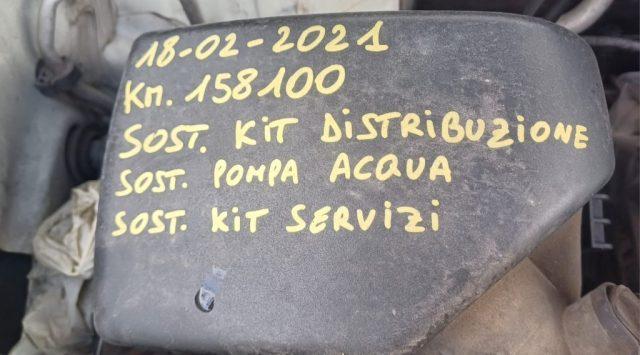 18-02-2021
Km. 158100
SOST. KIT DISTRIBUZIONE
SOST. POMPA ACQUA
SOST. KIT SERVIZI